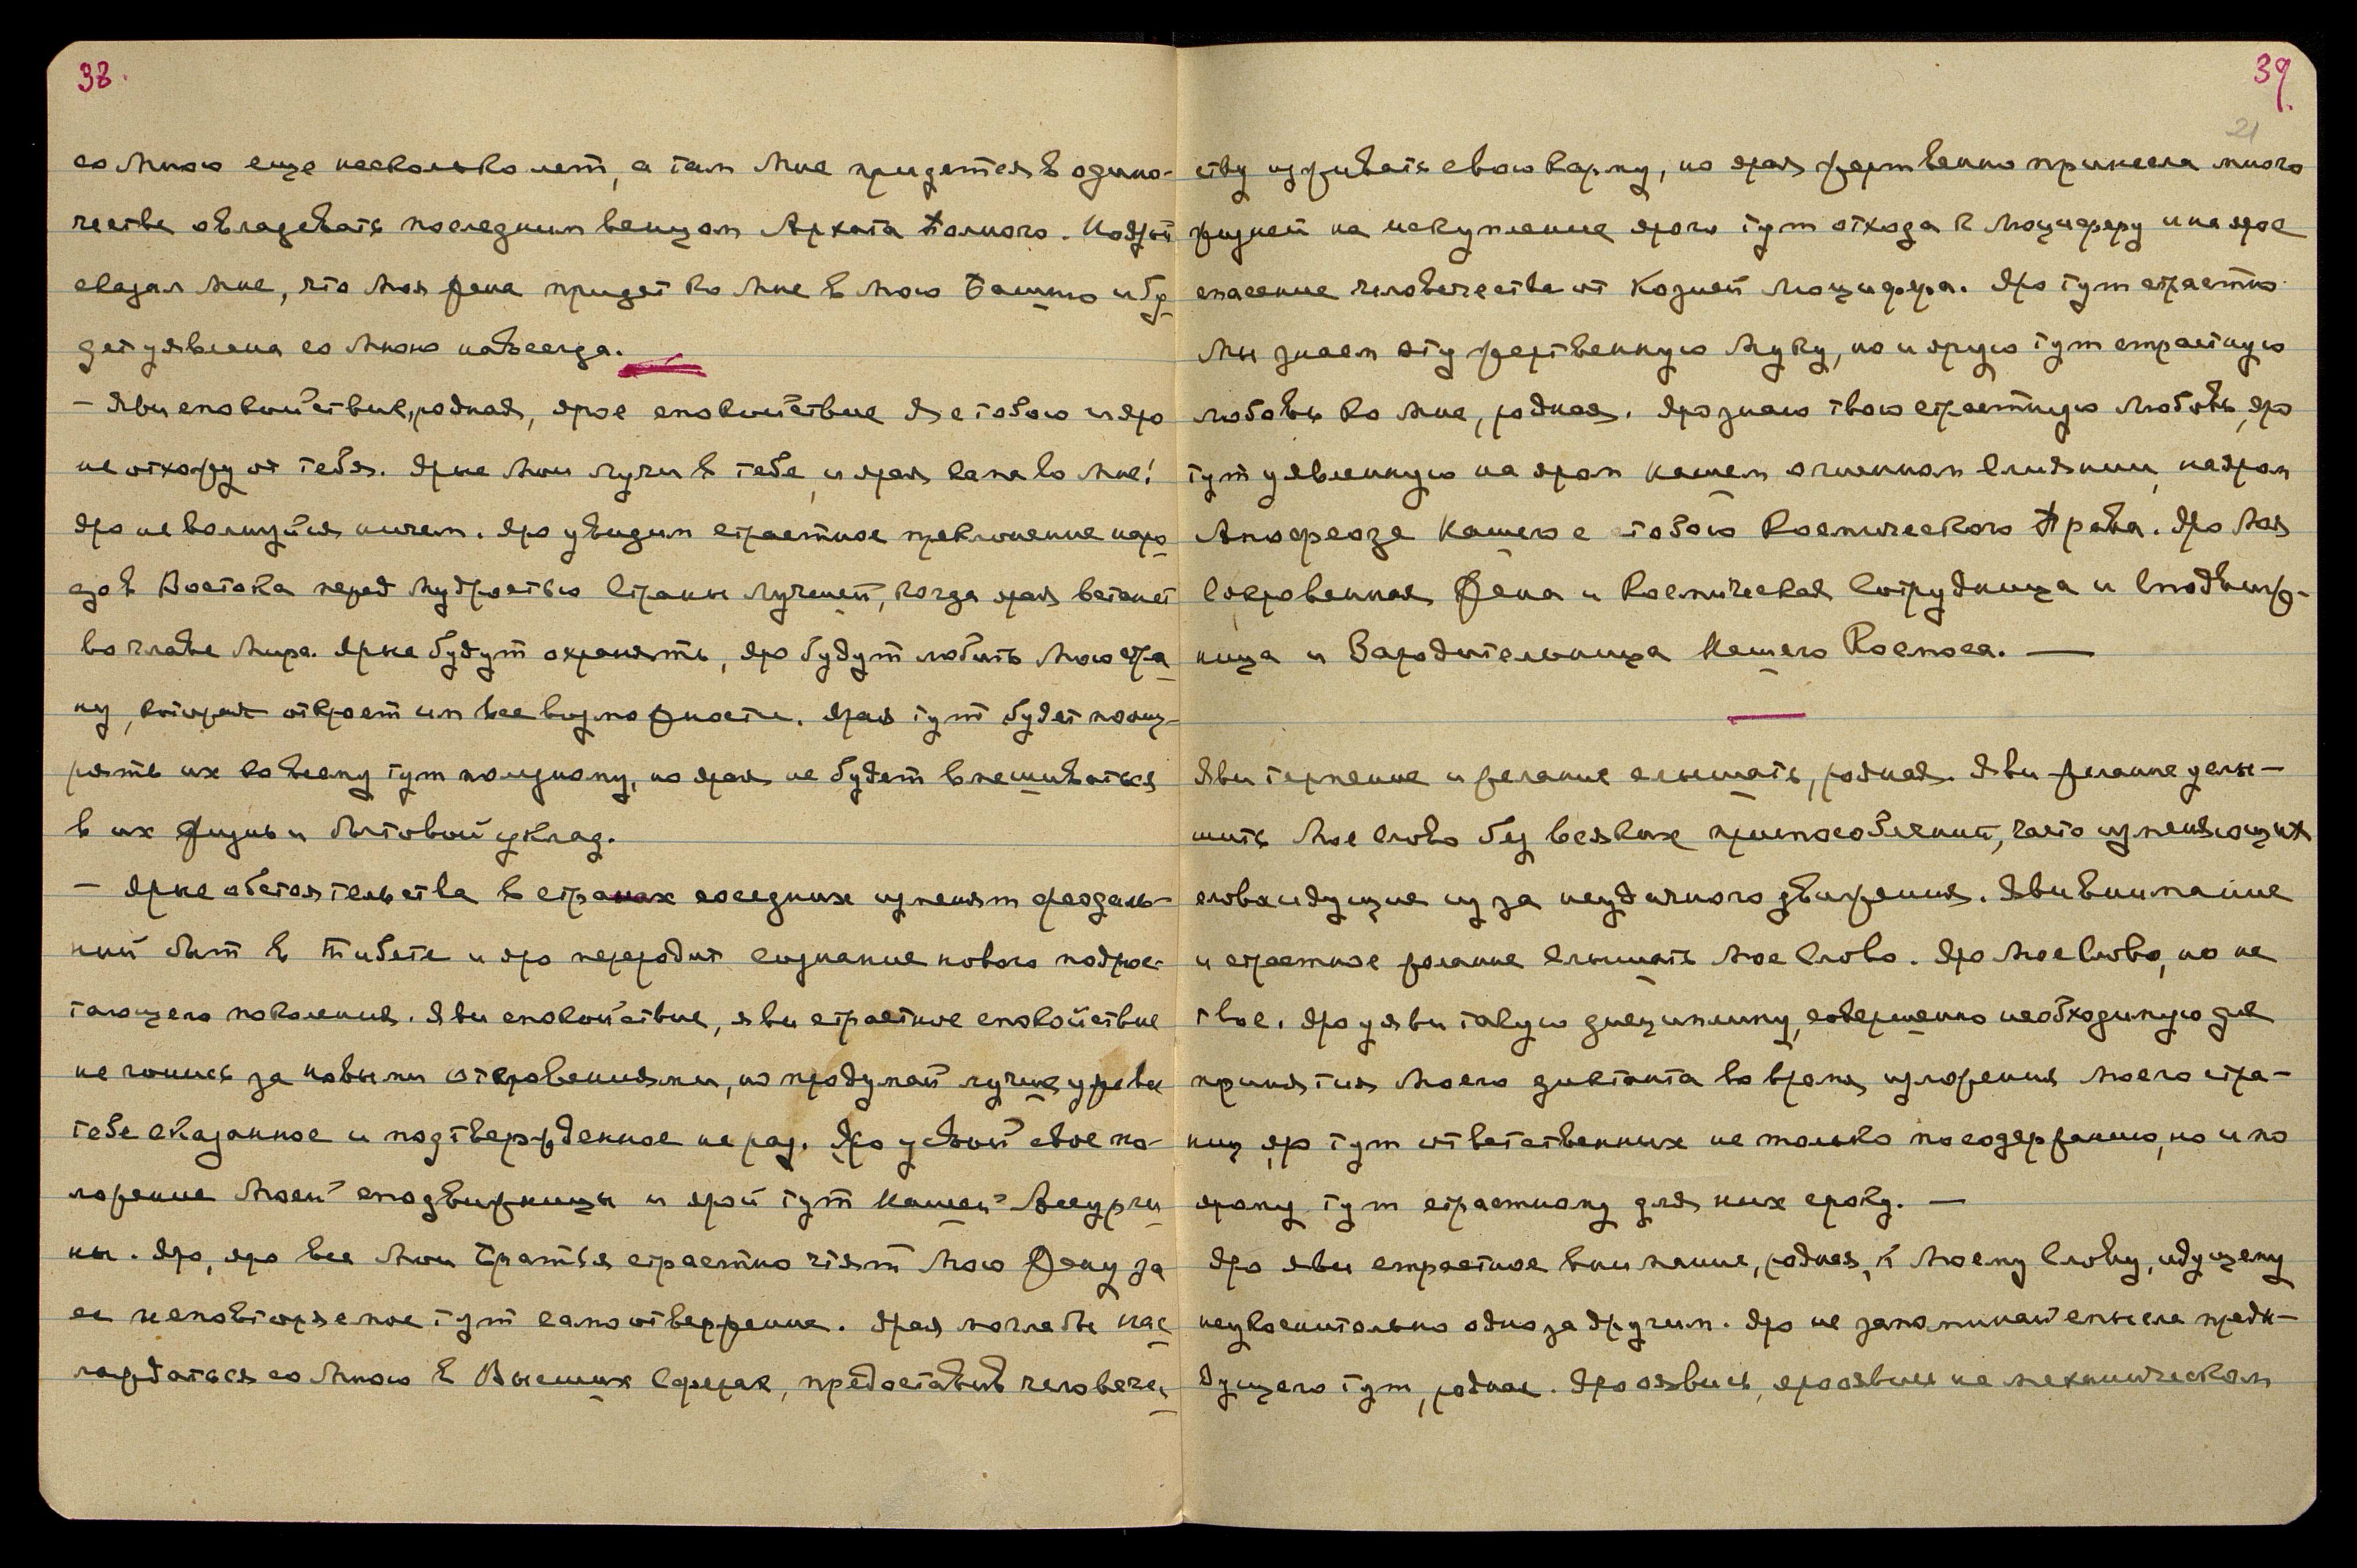 38.
со Мною еще несколько лет, а там Мне придется в одино-
честве овладевать последним венцом Архата Полного. Но ярый
сказал Мне, что Моя Жена придет ко Мне в Мою Башню и бу
дет уявлена со Мною навсегда.
– Яви спокойствие, родная, ярое спокойствие Я с тобою и яро
не отхожу от тебя. Ярые Мои лучи в тебе, и ярая сама во Мне!
Яро не волнуйся ничем. Яро увидим страстное преклонение наро
дов Востока перед Мудростью Страны Лучшей, когда ярая встанет
во главе Мира. Ярые будут охранять, яро будут любить Мою стра
ну, которая откроет им все возможности. Ярая тут будет поощ-
рять их ко всему тут полезному, но ярая не будет вмешиваться
в их жизнь и бытовой уклад.
– Ярые обстоятельства в странах соседних изменят феодаль-
ный быт в Тибете и яро переродит сознание нового подрас-
тающего поколения. Яви спокойствие, яви страстное спокойствие
не гонись за новыми откровениями, но продумай лучше уже все
тебе сказанное и подтвержденное не раз. Яро усвой свое по-
ложение Моей сподвижницы и ярой тут Нашей Ассурги
ны. Яро, яро все Мои Братья страстно чтят Мою Жену за
ее неповторяемое тут самоотвержение. Ярая могла бы нас
лаждаться со Мною в Высших Сферах, предоставив человечес
39.
21
ству изживать свою карму, но ярая жертвенно принесла много
жизней на искупление ярого тут отхода к Люциферу и на ярое
спасение человечества от Козней Люцифера. Яро тут страстно
Мы знаем эту жертвенную Муку, но и ярую тут страстную
любовь ко Мне, родная. Яро знаю твою страстную Любовь, яро
тут уявленную на яром нашем огненном слиянии, на яром
Апофеозе Нашего с тобою Космического Права. Яро Моя
Сокровенная Жена и Космическая Сотрудница и Сподвиж-
ница и Зародительница Нашего Космоса. —
Яви терпение и желание слышать, родная. Яви желание услы-
шать Мое Слово без всяких приспособлений, часто изменяющих
слова идущие из за неудачного движения. Яви внимание
и страстное желание слышать Мое Слово. Яро Мое Слово, но не
твое. Яро уяви такую дисциплину, совершенно необходимую для
принятия Моего диктанта во время изложения Моего стра-
ниц яро тут ответственных не только по содержанию, но и по
ярому тут страстному для них сроку. —
Яро яви страстное внимание, родная, к Моему Слову, идущему
неукоснительно одно за другим. Яро не запоминай смысла преды-
дущего тут, родная. Яро оявись, яро оявись на механическом